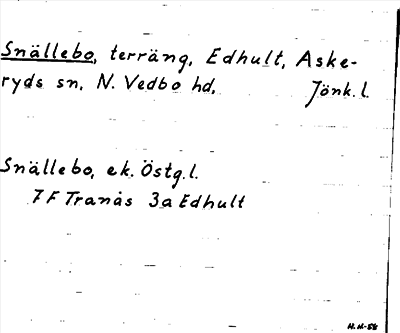 Snällebo, terräng, Edhult, Aske-
ryds sn, N. Vedbo hd, Jönk. l.
Snällebo, ek. Östg. l.
7 F Tranås 3a Edhult
H.H-58